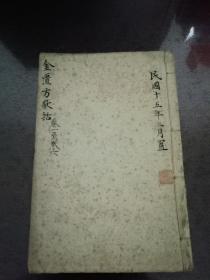 民國十五年三月置
金匱方歌括
卷一至卷六